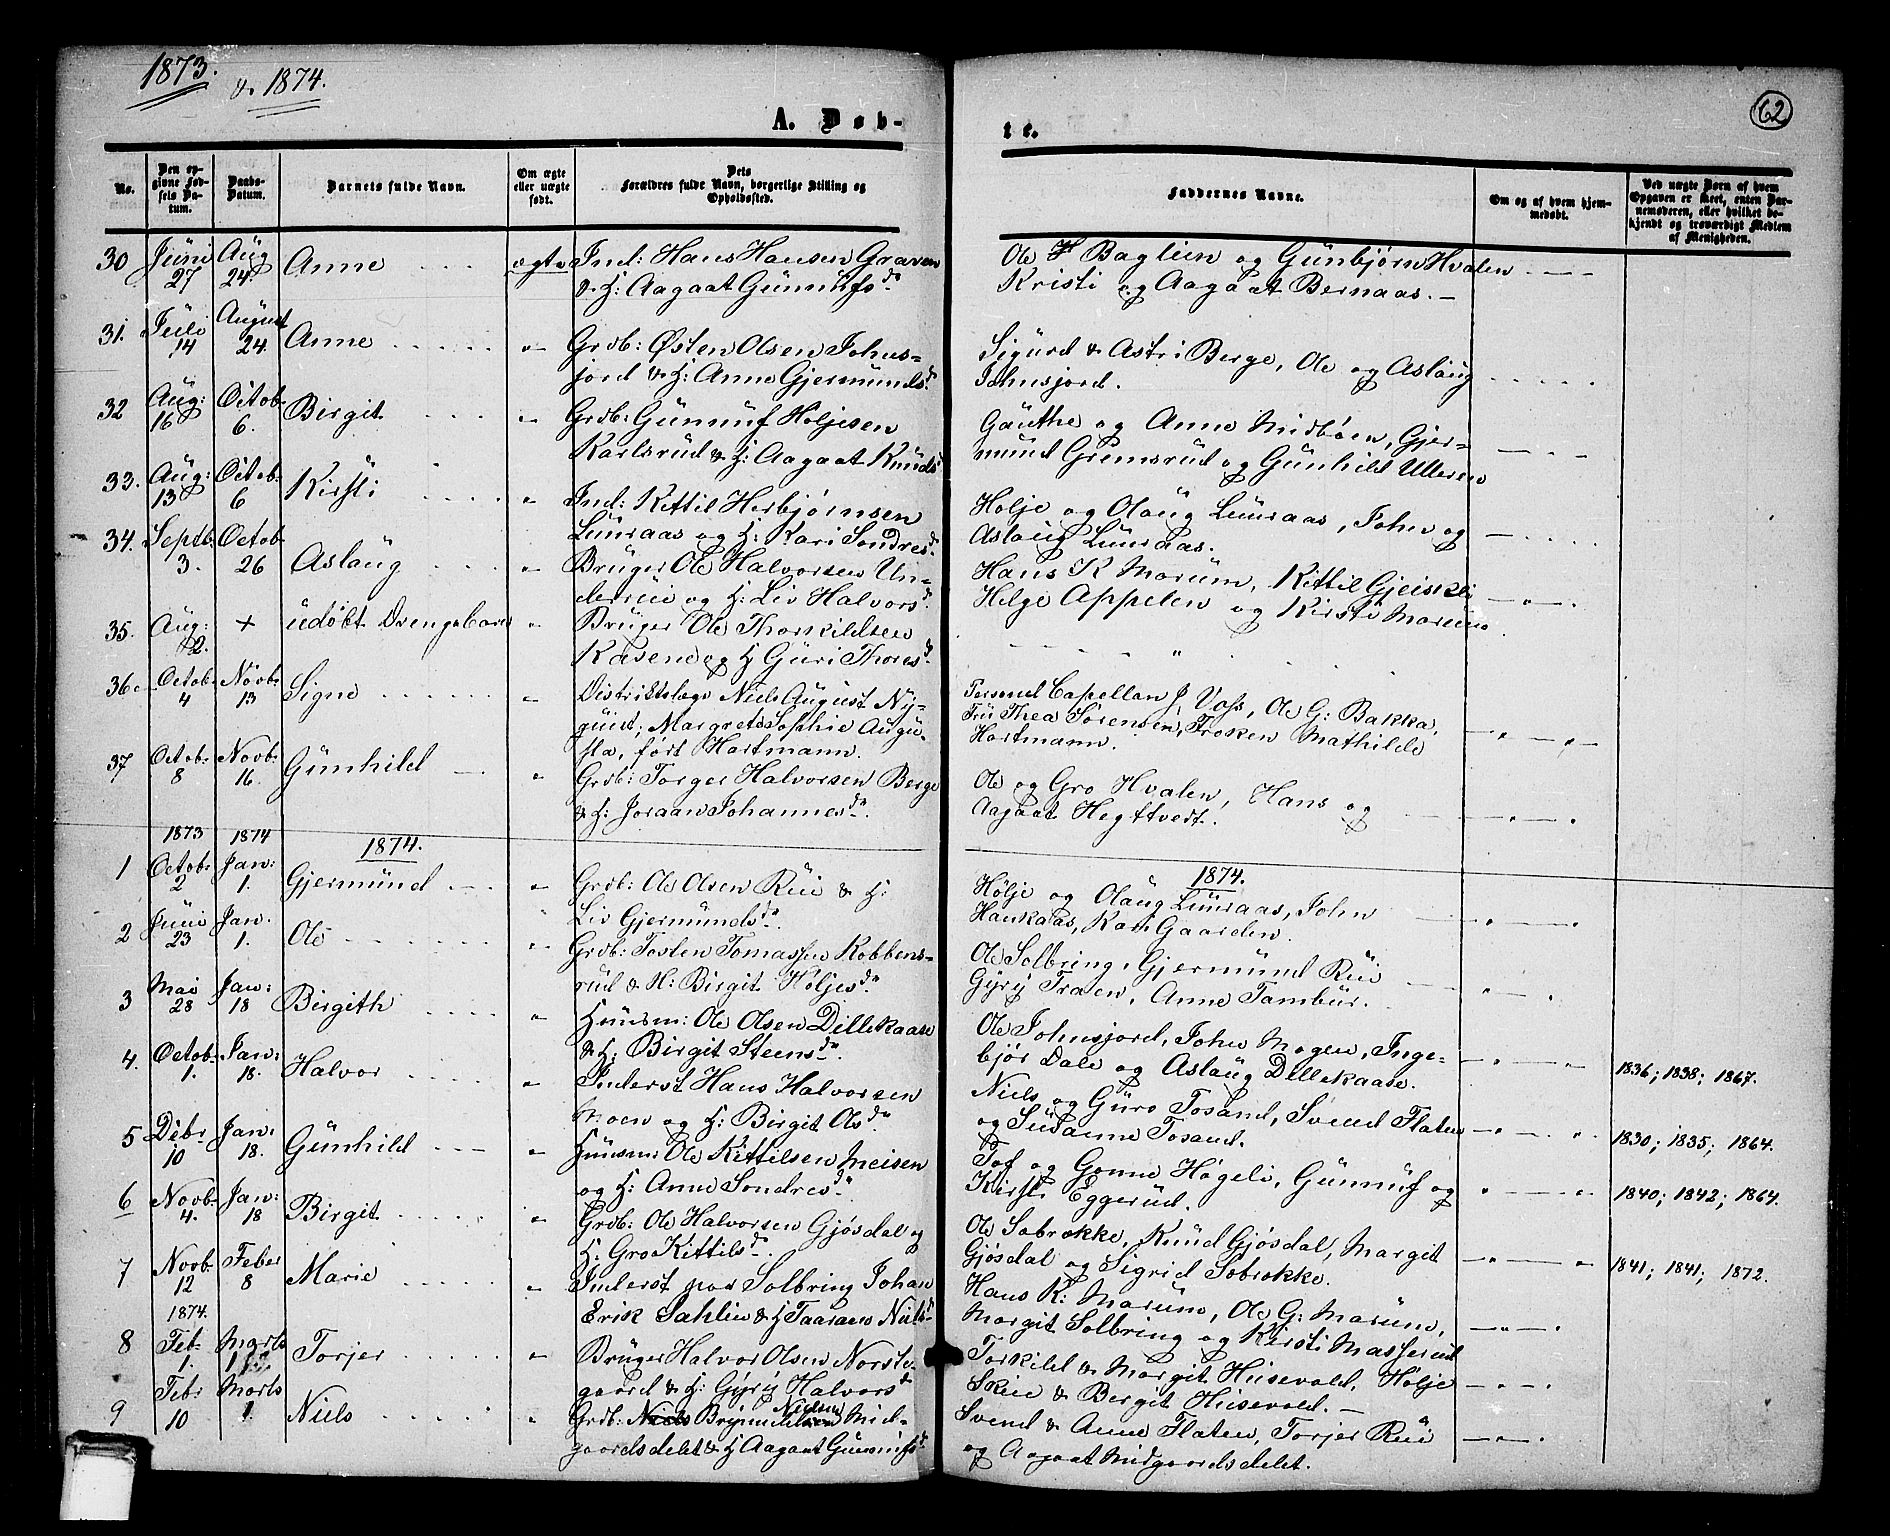 1873.
& 1874.
62
A. Døb-
te.
No.
Den op-
givne Fød-
sels Da-
tum.
Daabs-
Datum.
Barnets fulde Navn.
Om ægte
eller uægte
født.
Dets
Forældres fulde Navn, borgerlige Stilling og
Opholdssted.
Faddernes Navne.
Om og af hvem hjem-
medøbt.
Ved uægte Børn af hvem
Opgaven er skeet, enten Bar-
nemoderen, eller hvilket be-
kjendt og troværdigt Medlem
af Menigheden.
30 Juni 27 Aug 24. Anne ægte Ind: Hans Hansen Graven
& H: Aagaat Gunnufsdr
Ole H Baglien og Gunbjørn Hvalen
Kristi og Aagaat Bernaas.
31. Juli 14 August 24. Anne Grdb: Østen Olsen Johns-
jord & H: Anne Gjermundsdr
Sigurd & Astri Berge, Ole og Aslaug
Johnsjord.
32 Aug: 16 Octob. 6. Birgit Grdb: Gunnuf Holjesen
Karlsrud & H: Aagaat Knudsdr
Gauthe og Anne Midbøen, Gjer-
mund Gremsrud og Gunhild Ulleren
33. Aug: 13 Octob. 6 Kirsti Ind: Kittil Herbjørnsen
Luuraas og H: Kari Sondresdr.
Holje og Olaug Luuraas, John og
Aslaug Luuraas.
34. Septb. 3. Octob 26 Aslaug Bruger Ole Halvorsen Un-
deruie og H: Liv Halvorsdr.
Hans K Marum, Kittil Gjeiskli
Helge Appelen og Kirsti Marum
35. Aug: 2. + udøbt Drengebarn Bruger Ole Thorkildsen
Kasene og H Guri Thoresdr.
36 Octob. 4 Novb. 13 Signe Distriktslæge Niels August Ny-
quist; Margrete Sophie Augu-
sta, født Hartmann.
Personel Capellan J. Voss, Ole G: Bakka,
Fru Thea Sørensen, Frøken Mathilde
Hartmann.
37 Octob. 8 Novb. 16. Gunhild Grdb: Torger Halvorsen Berge
& H: Joraan Johannesdr.
Ole og Gro Hvalen, Hans og
Aagaat Hegttvedt.
1873 1874 1874. 1874.
1 Octob. 2 Jan: 1. Gjermund Grdb: Ole Olsen Rui & H:
Liv Gjermundsdr.
Hølje og Olaug Luuraas, John
Haukaas, Kari Gaarden.
2 Juni 23 Jan. 1. Ole Grdb: Tosten Tomassen Kobbens-
rud & H: Birgit Holjesdr.
Ole Solbring, Gjermund Rui
Gyry Traen, Anne Tambur.
3 Mai 28 Jan: 18 Birgith Huusm: Ole Olsen Dillekaase
& H: Birgit Steensdr.
Ole Johnsjord, John Mogen, Inge-
bjør Dale og Aslaug Dillekaase.
1836; 1838; 1867.
4. Octob. 1. Jan: 18. Halvor Inderst Hans Halvorsen
Moen og H: Birgit Olsdr
Niels og Guro Tosand, Svend Flaten
og Susanne Tosand.
1830; 1835; 1864.
5 Debr 10 Jan: 18. Gunhild Huusm: Ole Kittilsen Meisen
og H: Anne Sondresdr.
Tof og Gonne Høgeli, Gunnuf og
Kirsti Eggerud.
1840; 1842; 1864.
6 Novb. 4. Jan: 18 Birgit Grdb: Ole Halvorsen Gjøsdal og
H: Gro Kittilsdr.
Ole Sobrokke, Knud Gjøsdal, Margit
Gjøsdal og Sigrid Sobrokke.
1841; 1841; 1872.
7 Novb. 12 Feber 8 Marie Inderst paa Solbring Johan
Erik Sahlin & H Taaraan Nielsdr
Hans K: Marum, Ole G: Marum,
Margit Solbring og Kirsti Masserud
1874.
8 Feb. 1. Marts 1 Torjer Bruger Halvor Olsen Norste-
gaard & H: Gyry Halvorsdr
Torkild & Margit Husevold, Holje
Skue & Bergit Husevold.
9 Febr 10 Marts 1. Niels Grdb: Niels Brynuldsen Nielsen Mid-
gaardsdelet & H Aagaat Gunnufsdr
Svend & Anne Flaten, Torjer Rui
og Aagaat Midgaardsdelet.